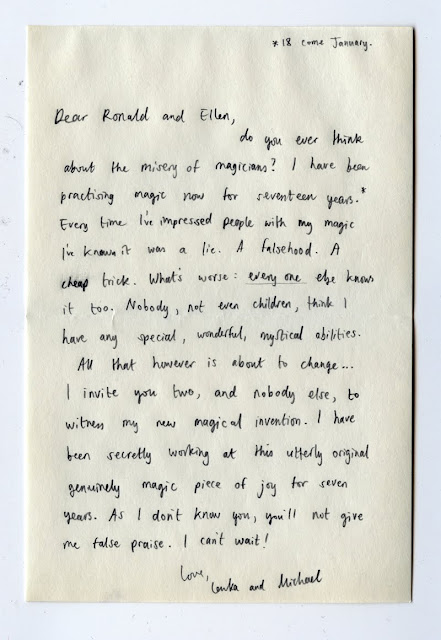 *18 come January.
Dear Ronald and Ellen,
do you ever think
about the misery of magicians? I have been
practising magic now for seventeen years.*
Every time I've impressed people with my magic
I've known it was a lie. A falsehood. A
cheap trick. What's worse: every one else knows
it too. Nobody, not even children, think I
have any special, wonderful, mystical abilities.
All that however is about to change...
I invite you two, and nobody else, to
witness my new magical invention. I have
been secretly working at this utterly original
genuinely magic piece of joy for seven
years. As I don't know you, you'll not give
me false praise. I can't wait!
Love,
Lenka and Michael